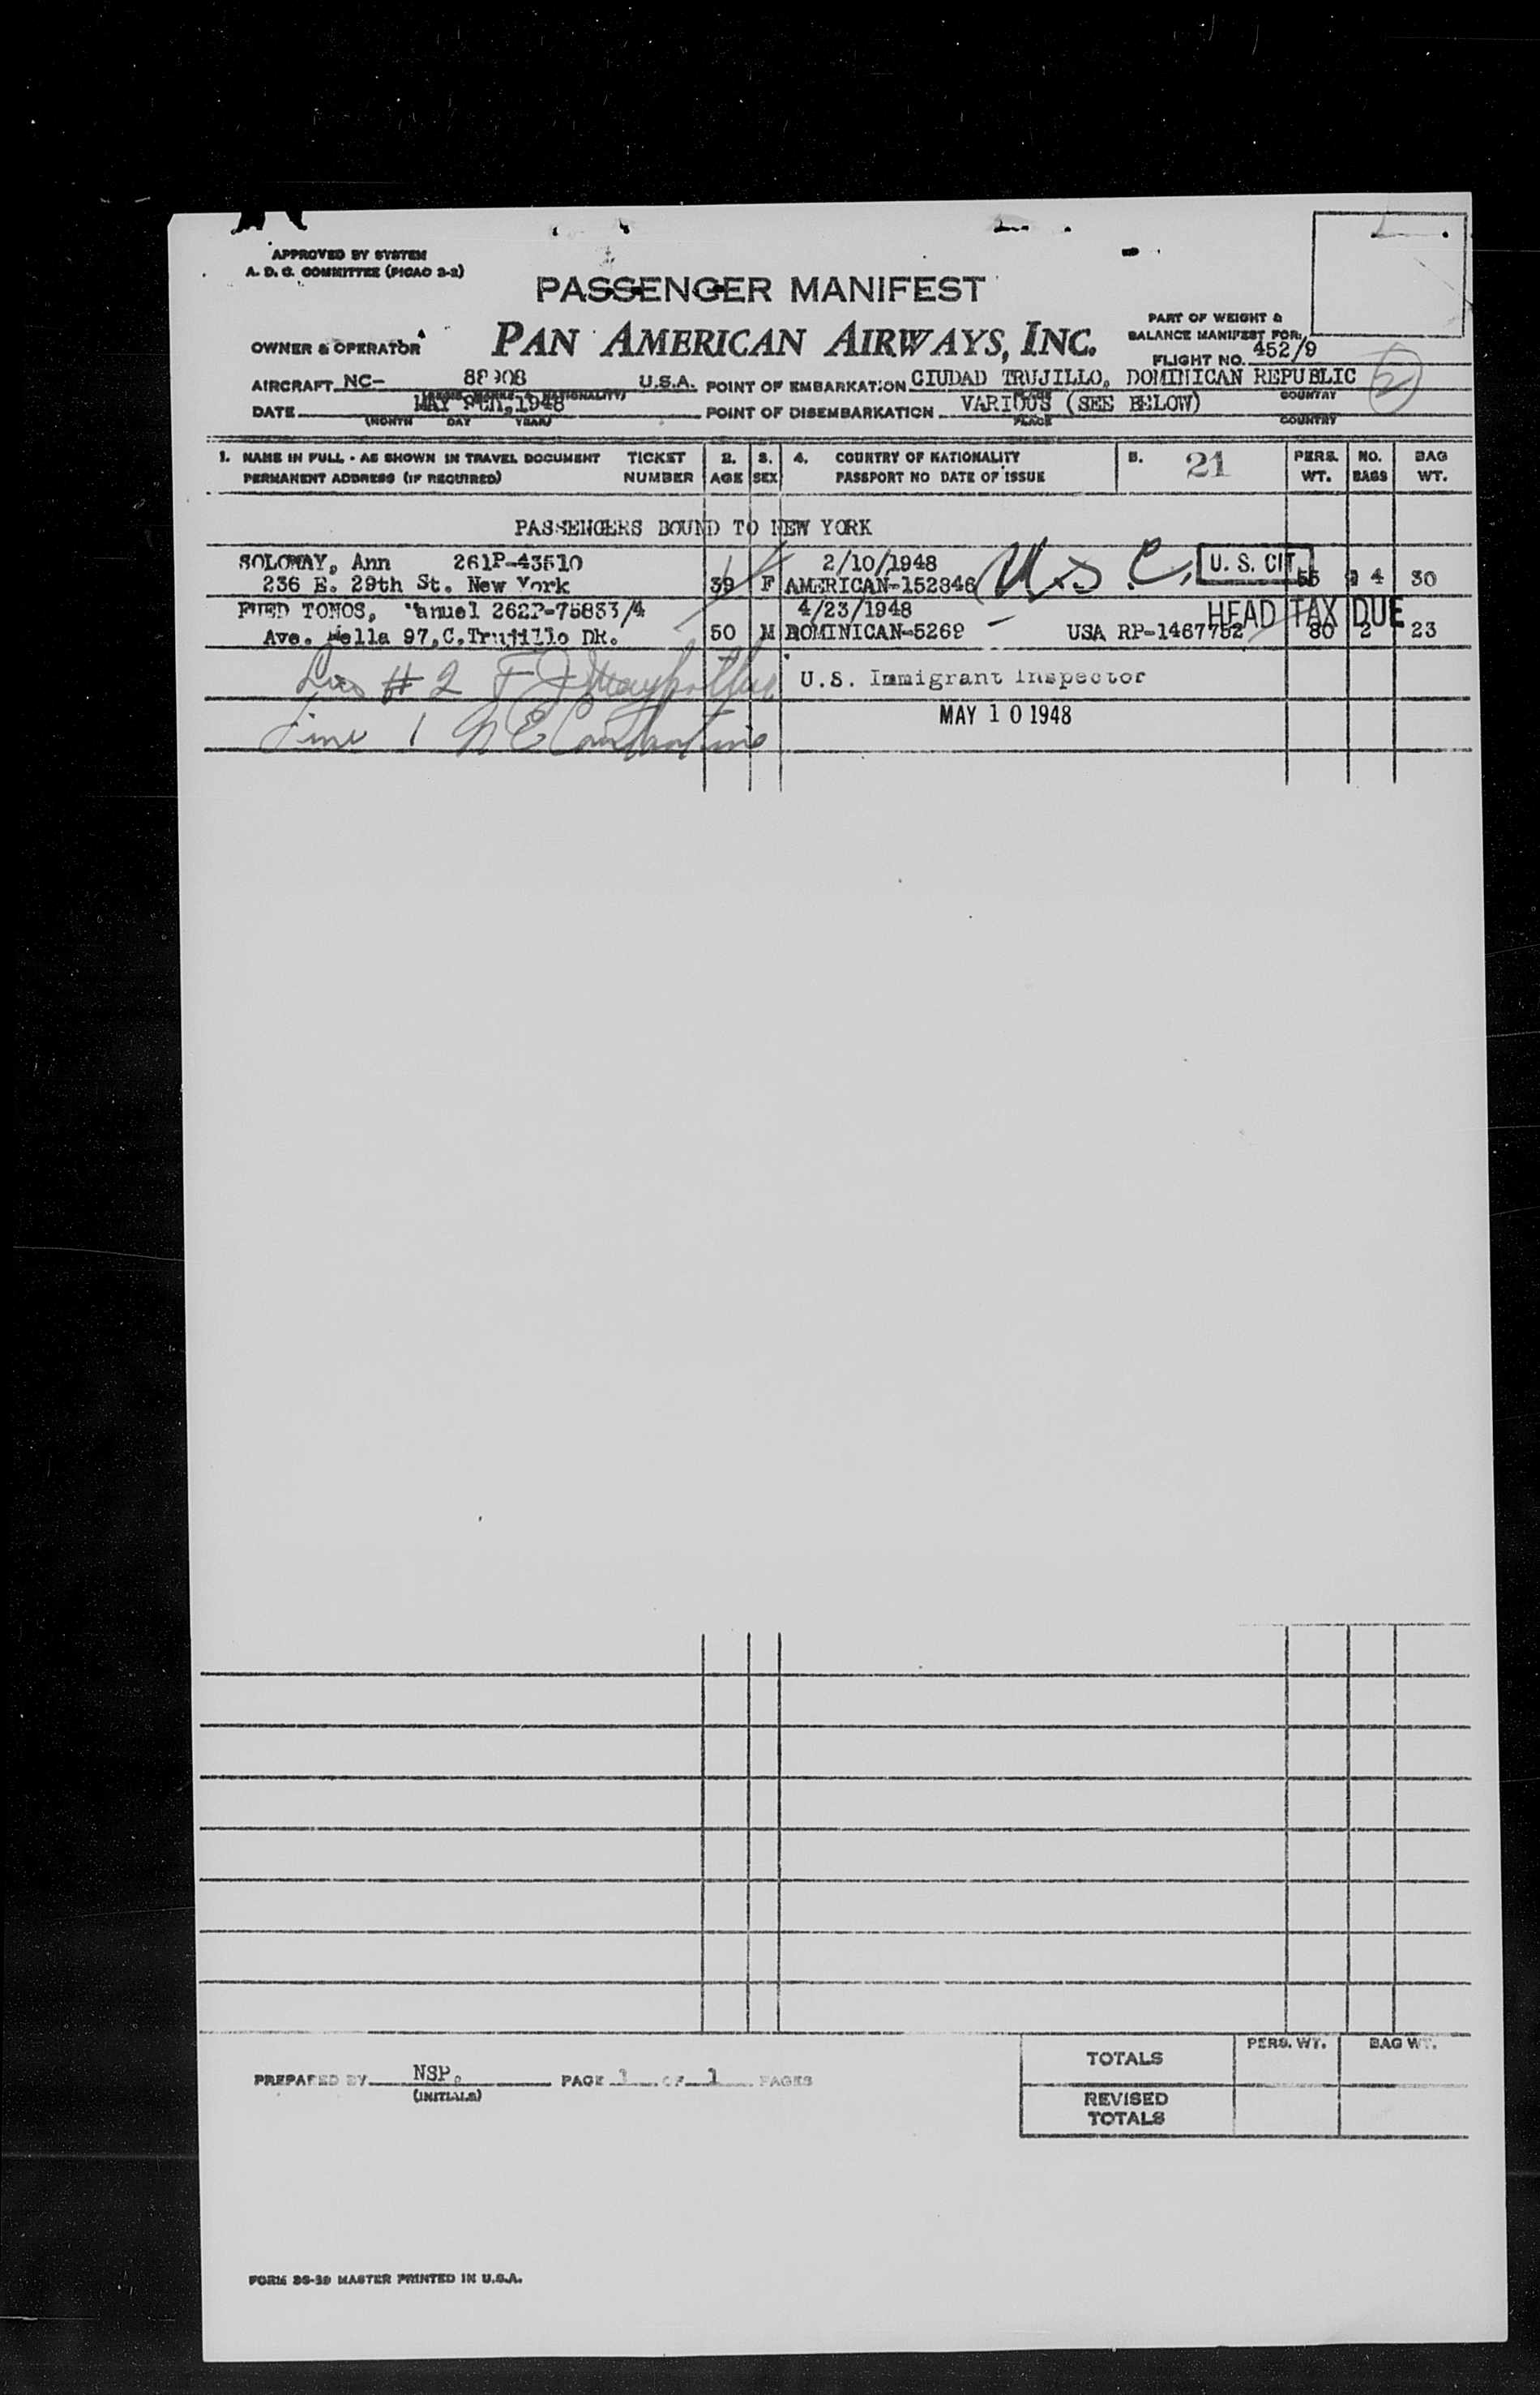 APPROVED BY SYSTEM
A. D. G. COMMITTEE (PICAO 2-2)
PASSENGER MANIFEST
OWNER & OPERATOR PAN AMERICAN AIRWAYS, INC.
PART OF WEIGHT &
BALANCE MANIFEST FOR:
FLIGHT NO. 452/9
AIRCRAFT NC- 88908 U.S.A. POINT OF EMBARKATION CIUDAD TRUJILLO, DOMINICAN REPUBLIC 2
COUNTRY
DATE MAY 1948 POINT OF DISEMBARKATION VARIOUS (SEE BELOW)
(MONTH DAY YEAR) PLACE COUNTRY
1. NAME IN FULL - AS SHOWN IN TRAVEL DOCUMENT TICKET 2. 3. 4. COUNTRY OF NATIONALITY 5. 21 PERS. NO. BAG
PERMANENT ADDRESS (IF REQUIRED) NUMBER AGE SEX PASSPORT NO DATE OF ISSUE WT. BAGS WT.
PASSENGERS BOUND TO NEW YORK
SOLOWAY, Ann 261P-43510 2/10/1948 U.S.C. U. S. CIT
236 E. 29th St. New York 39 F AMERICAN-152846 55 4 30
FUED TOMOS, Manuel 262P-75833/4 4/23/1948 HEAD TAX DUE
Ave. Mella 97,C.Trujillo DR. 50 M DOMINICAN-5269 USA RP-1467752 80 2 23
# 2 U.S. Immigrant Inspector
Line 1 MAY 10 1948
TOTALS PERS. WT. BAG WT.
PREPARED BY NSP. PAGE 1 OF 1 PAGES
(INITIALS)
REVISED
TOTALS
FORM 36-39 MASTER PRINTED IN U.S.A.